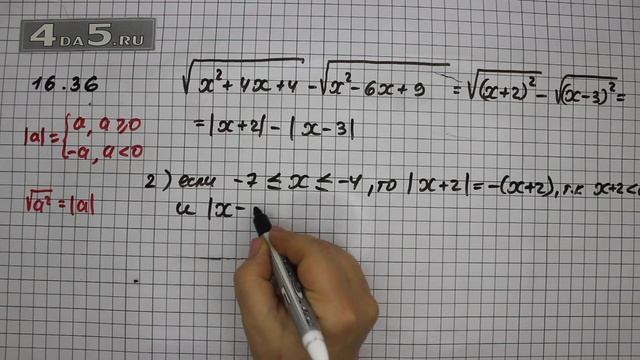 4DA5.RU
16.36
√(x²+4x+4) - √(x²-6x+9) = √(x+2)² - √(x-3)² =
= |x+2| - |x-3|
|a| = { a, a≥0
-a, a<0
√a² = |a|
2) если -7 ≤ x ≤ -4, то |x+2| = -(x+2), т.к x+2<0
и |x-